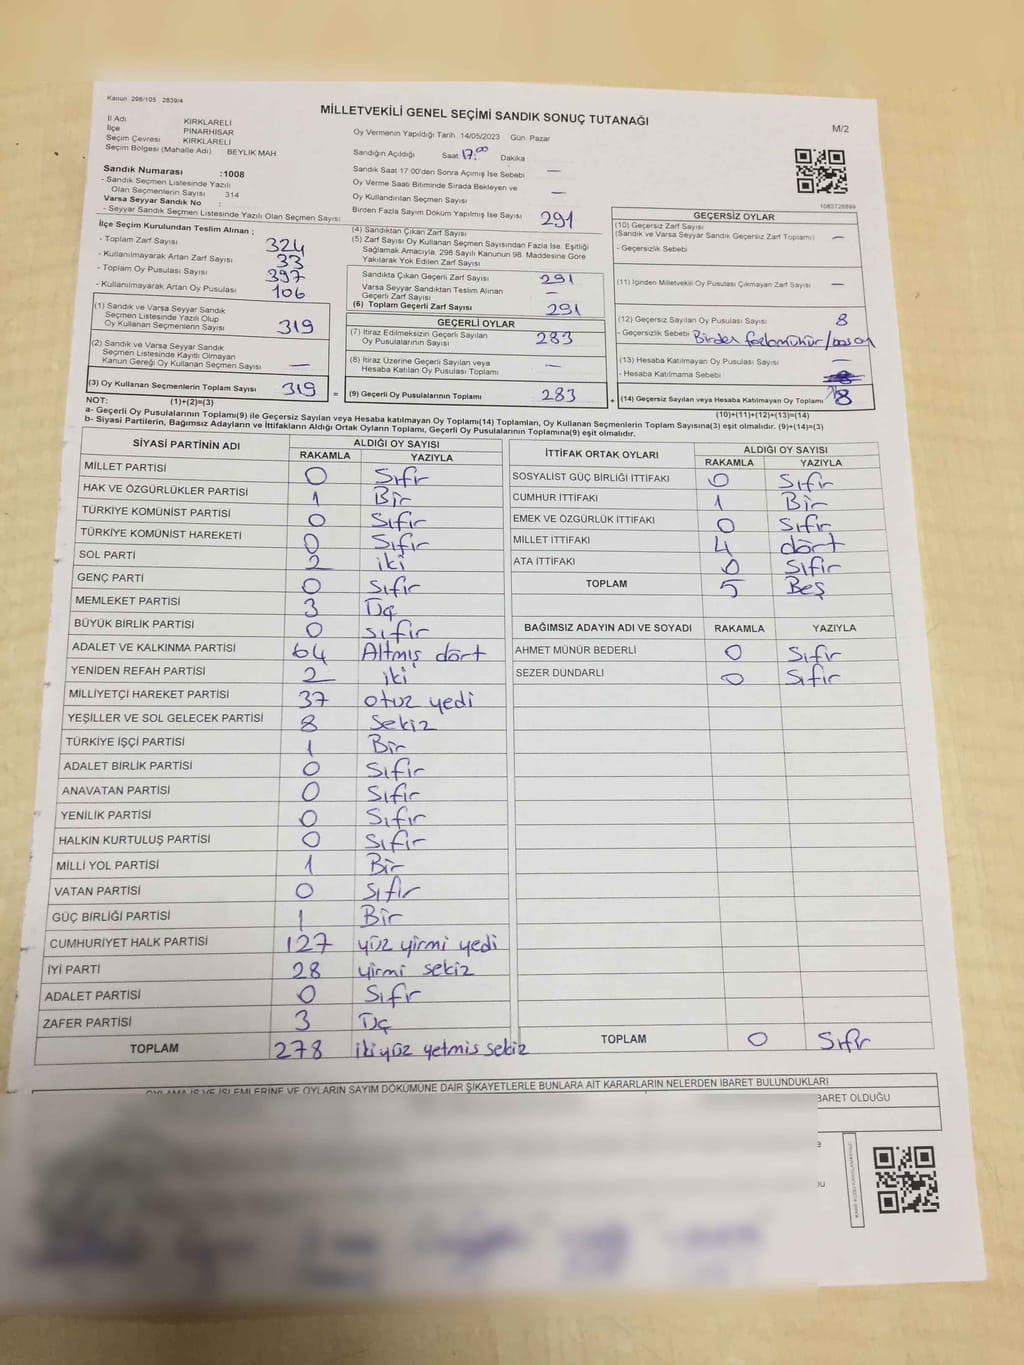 Kanun 298/105 2839/4
MİLLETVEKİLİ GENEL SEÇİMİ SANDIK SONUÇ TUTANAĞI
M/2
İl Adı KIRKLARELİ
İlçe PINARHİSAR
Seçim Çevresi KIRKLARELİ
Seçim Bölgesi (Mahalle Adı) BEYLİK MAH
Sandık Numarası :1008
- Sandık Seçmen Listesinde Yazılı
Olan Seçmenlerin Sayısı 314
Varsa Seyyar Sandık No :
- Seyyar Sandık Seçmen Listesinde Yazılı Olan Seçmen Sayısı
Oy Vermenin Yapıldığı Tarih 14/05/2023 Gün Pazar
Sandığın Açıldığı Saat 17.00 Dakika
Sandık Saat 17 00'den Sonra Açımış İse Sebebi —
Oy Verme Saati Bitiminde Sırada Bekleyen ve
Oy Kullandırılan Seçmen Sayısı —
Birden Fazla Sayım Döküm Yapılmış İse Sayısı
1083728899
İlçe Seçim Kurulundan Teslim Alınan ;
- Toplam Zarf Sayısı 324
- Kullanılmayarak Artan Zarf Sayısı 33
- Toplam Oy Pusulası Sayısı 397
- Kullanılmayarak Artan Oy Pusulası 106
(1) Sandık ve Varsa Seyyar Sandık
Seçmen Listesinde Yazılı Olup
Oy Kullanan Seçmenlerin Sayısı 319
(2) Sandık ve Varsa Seyyar Sandık
Seçmen Listesinde Kayıtlı Olmayan
Kanun Gereği Oy Kullanan Seçmen Sayısı —
(3) Oy Kullanan Seçmenlerin Toplam Sayısı 319 =
(4) Sandıktan Çıkan Zarf Sayısı 291
(5) Zarf Sayısı Oy Kullanan Seçmen Sayısından Fazla İse. Eşitliği
Sağlamak Amacıyla, 298 Sayılı Kanunun 98. Maddesine Göre
Yakılarak Yok Edilen Zarf Sayısı
Sandıkta Çıkan Geçerli Zarf Sayısı 291
Varsa Seyyar Sandıktan Teslim Alınan
Geçerli Zarf Sayısı —
(6) Toplam Geçerli Zarf Sayısı 291
GEÇERLİ OYLAR
(7) İtiraz Edilmeksizin Geçerli Sayılan
Oy Pusulalarının Sayısı 283
(8) İtiraz Üzerine Geçerli Sayılan veya
Hesaba Katılan Oy Pusulası Toplamı —
(9) Geçerli Oy Pusulalarının Toplamı 283 +
GEÇERSİZ OYLAR
(10) Geçersiz Zarf Sayısı
(Sandık ve Varsa Seyyar Sandık Geçersiz Zarf Toplamı) —
- Geçersizlik Sebebi
(11) İçinden Milletvekili Oy Pusulası Çıkmayan Zarf Sayısı —
(12) Geçersiz Sayılan Oy Pusulası Sayısı 8
- Geçersizlik Sebebi Birden fazla mühür/
(13) Hesaba Katılmayan Oy Pusulası Sayısı —
- Hesaba Katılmama Sebebi
(14) Geçersiz Sayılan veya Hesaba Katılmayan Oy Toplamı 8
NOT: (1)+(2)=(3) (10)+(11)+(12)+(13)=(14)
a- Geçerli Oy Pusulalarının Toplamı(9) ile Geçersiz Sayılan veya Hesaba katılmayan Oy Toplamı(14) Toplamları, Oy Kullanan Seçmenlerin Toplam Sayısına(3) eşit olmalıdır. (9)+(14)=(3)
b- Siyasi Partilerin, Bağımsız Adayların ve İttifakların Aldığı Ortak Oyların Toplamı, Geçerli Oy Pusulalarının Toplamına(9) eşit olmalıdır.
SİYASİ PARTİNİN ADI ALDIĞI OY SAYISI
RAKAMLA YAZIYLA
MİLLET PARTİSİ 0 Sıfır
HAK VE ÖZGÜRLÜKLER PARTİSİ 1 Bir
TÜRKİYE KOMÜNİST PARTİSİ 0 Sıfır
TÜRKİYE KOMÜNİST HAREKETİ 0 Sıfır
SOL PARTİ 2 iki
GENÇ PARTİ 0 Sıfır
MEMLEKET PARTİSİ 3 Üç
BÜYÜK BİRLİK PARTİSİ 0 sıfır
ADALET VE KALKINMA PARTİSİ 64 Altmış dört
YENİDEN REFAH PARTİSİ 2 iki
MİLLİYETÇİ HAREKET PARTİSİ 37 otuz yedi
YEŞİLLER VE SOL GELECEK PARTİSİ 8 Sekiz
TÜRKİYE İŞÇİ PARTİSİ 1 Bir
ADALET BİRLİK PARTİSİ 0 Sıfır
ANAVATAN PARTİSİ 0 Sıfır
YENİLİK PARTİSİ 0 Sıfır
HALKIN KURTULUŞ PARTİSİ 0 Sıfır
MİLLİ YOL PARTİSİ 1 Bir
VATAN PARTİSİ 0 Sıfır
GÜÇ BİRLİĞİ PARTİSİ 1 Bir
CUMHURİYET HALK PARTİSİ 127 yüz yirmi yedi
İYİ PARTİ 28 yirmi sekiz
ADALET PARTİSİ 0 Sıfır
ZAFER PARTİSİ 3 Üç
TOPLAM 278 iki yüz yetmis sekiz
İTTİFAK ORTAK OYLARI ALDIĞI OY SAYISI
RAKAMLA YAZIYLA
SOSYALİST GÜÇ BİRLİĞİ İTTİFAKI 0 Sıfır
CUMHUR İTTİFAKI 1 Bir
EMEK VE ÖZGÜRLÜK İTTİFAKI 0 Sıfır
MİLLET İTTİFAKI 4 dört
ATA İTTİFAKI 0 Sıfır
TOPLAM 5 Beş
BAĞIMSIZ ADAYIN ADI VE SOYADI RAKAMLA YAZIYLA
AHMET MÜNÜR BEDERLİ 0 Sıfır
SEZER DÜNDARLI 0 Sıfır
TOPLAM 0 Sıfır
OYLAMA İŞ VE İŞLEMLERİNE VE OYLARIN SAYIM DÖKÜMÜNE DAİR ŞİKAYETLERLE BUNLARA AİT KARARLARIN NELERDEN İBARET BULUNDUKLARI
BARET OLDUĞU